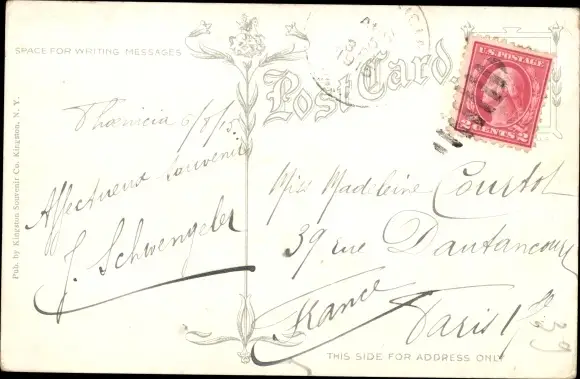 SPACE FOR WRITING MESSAGES
Post Card
U.S. POSTAGE
2 CENTS 2
Phoenicia 6/8/15
Affectueux souvenir
J. Schwengeler
Miss Madeleine Courtot
39 rue Dautancourt
Paris 17
France
39
THIS SIDE FOR ADDRESS ONLY
Pub. by Kingston Souvenir Co. Kingston, N. Y.